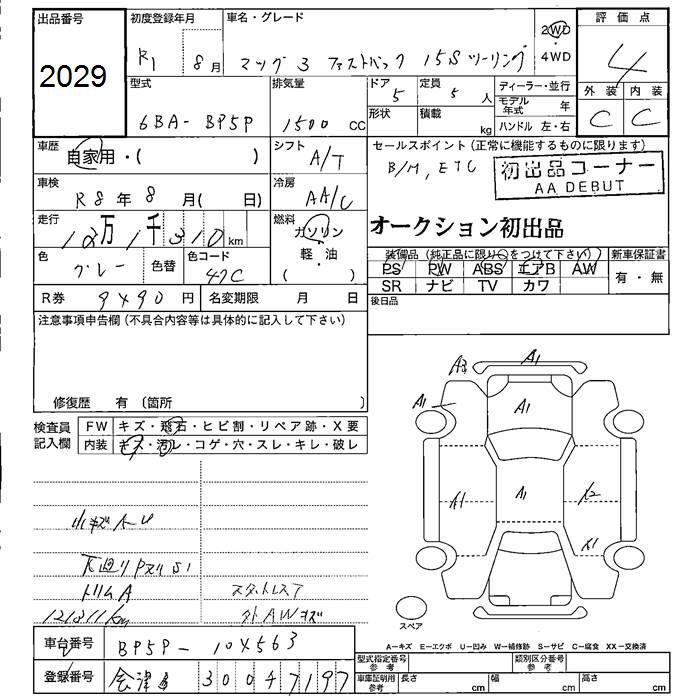 出品番号
2029
初度登録年月
R1 8月
車名・グレード
マツダ3 ファストバック 15S ツーリング
2WD
4WD
評価点
4
外装 内装
C C
型式
6BA- BP5P
排気量
1500 cc
ドア
5
定員
5 人
形状
積載
kg
ディーラー・並行
モデル年式 年
ハンドル 左・右
車歴
自家用・( )
シフト
A/T
セールスポイント(正常に機能するものに限ります)
B/M, ETC
初出品コーナー
AA DEBUT
車検
R8年8月( 日)
冷房
AA/C
走行
12万1千310km
燃料
ガソリン
軽・油
( )
オークション初出品
色
グレー
色替
色コード
47C
装備品(純正品に限り○をつけて下さい)
新車保証書
PS PW ABS エアB AW
SR ナビ TV カワ
有・無
R券 9490円
名変期限 月 日
後日品
注意事項申告欄(不具合内容等は具体的に記入して下さい)
修復歴 有(箇所 )
検査員
記入欄
FW キズ・飛石・ヒビ割・リペア跡・X要
内装 キズ・汚レ・コゲ・穴・スレ・キレ・破レ
A3 A1
A1 A1
A1 A1 A2
A1
小キズ人U
下廻りPスリS1
トリムA スタットレスT
121311km 外AWキズ
スペア
A-キズ E-エクボ U-凹み W-補修跡 S-サビ C-腐食 XX-交換済
車台番号 BP5P-104563
登録番号 会津 300 4 7197
型式指定番号 参考
類別区分番号 参考
車庫証明用 参考
長さ cm
幅 cm
高さ cm